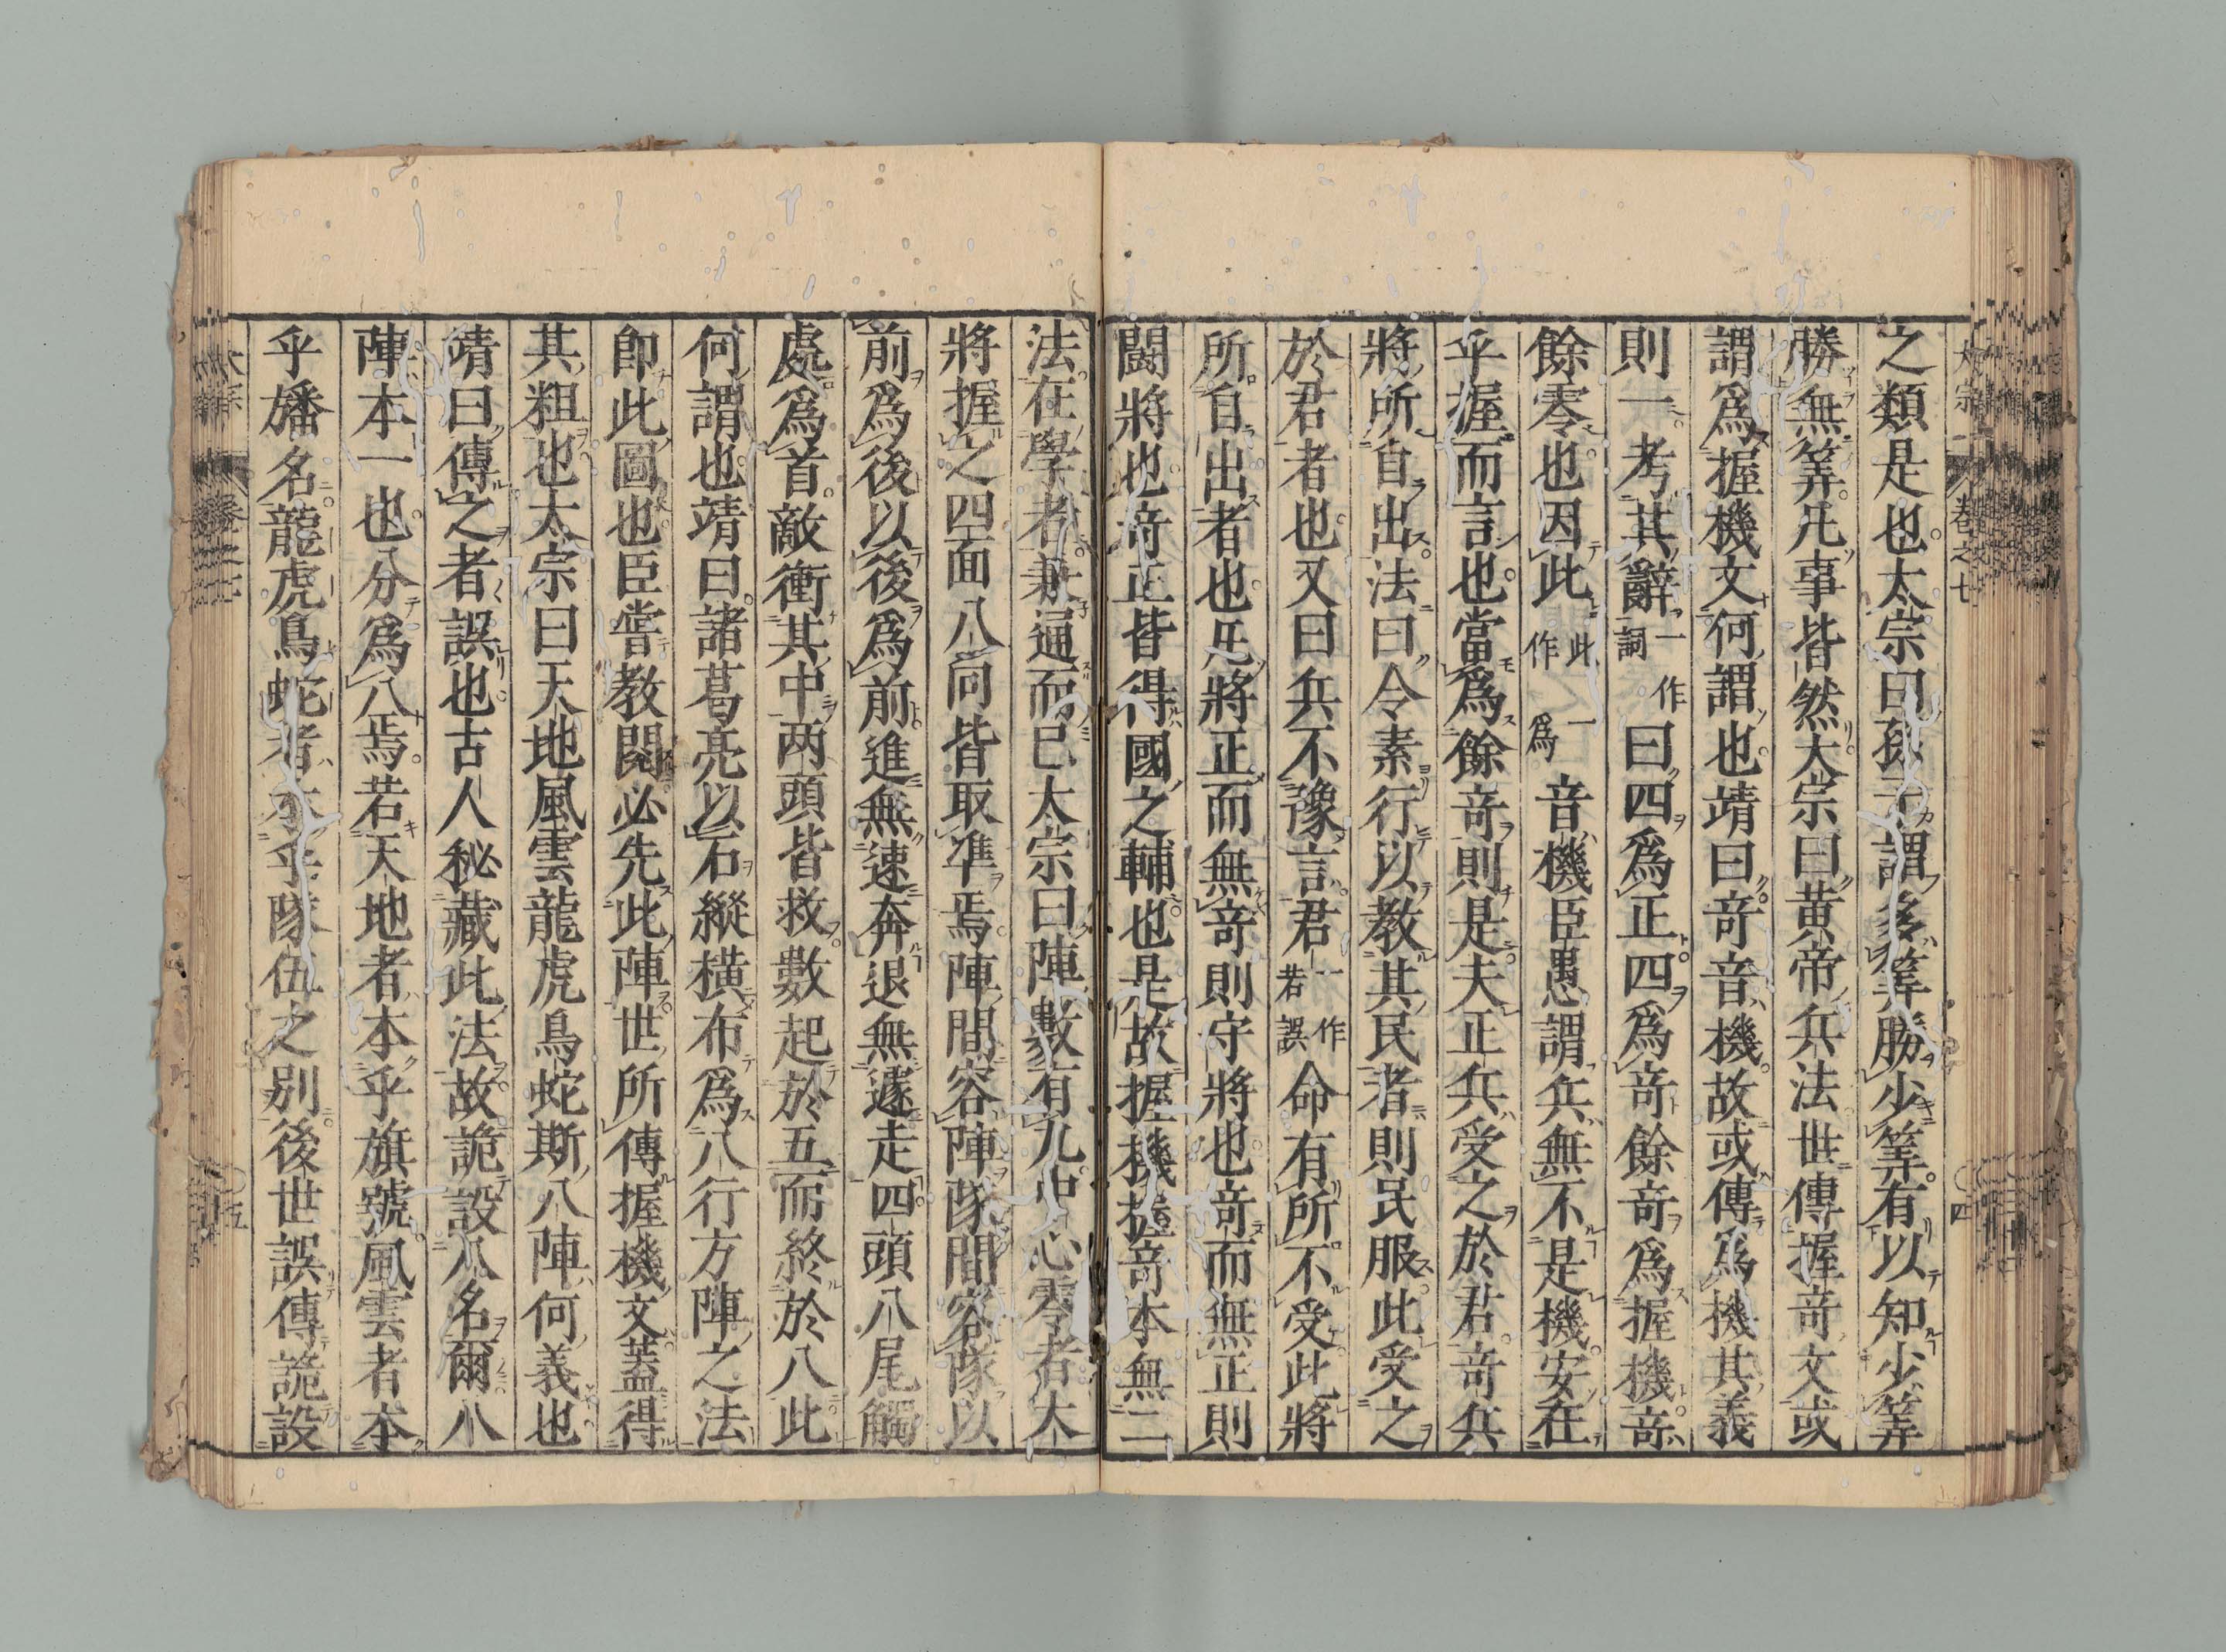 太宗　卷之七　四
之類是也太宗曰孫子謂多筭勝少筭有以知少筭
勝無筭凡事皆然太宗曰黄帝兵法世傳握竒文或
謂爲握機文何謂也靖曰竒音機故或傳爲機其義
則一考其辭一作詞曰四爲正四爲竒餘竒爲握機竒
餘零也因此此一作爲音機臣愚謂兵無不是機安在
乎握而言也當爲餘竒則是夫正兵受之於君竒兵
將所自出法曰令素行以教其民者則民服此受之
於君者也又曰兵不豫言君一作若誤命有所不受此將
所自出者也凡將正而無竒則守將也竒而無正則
鬪將也竒正皆得國之輔也是故握機握竒本無二
法在學者兼通而已太宗曰陣數有九中心零者大
將握之四面八向皆取准焉陣間容陣隊間容隊以
前爲後以後爲前進無速奔退無遽走四頭八尾觸
處爲首敵衝其中两頭皆救數起於五而終於八此
何謂也靖曰諸葛亮以石縱橫布爲八行方陣之法
即此圖也臣嘗教閱必先此陣世所傳握機文蓋得
其粗也太宗曰天地風雲龍虎鳥蛇斯八陣何義也
靖曰傳之者誤也古人秘藏此法故詭設八名爾八
陣本一也分爲八焉若天地者本乎旗號風雲者本
乎旛名龍虎鳥蛇者本乎隊伍之别後世誤傳詭設
五